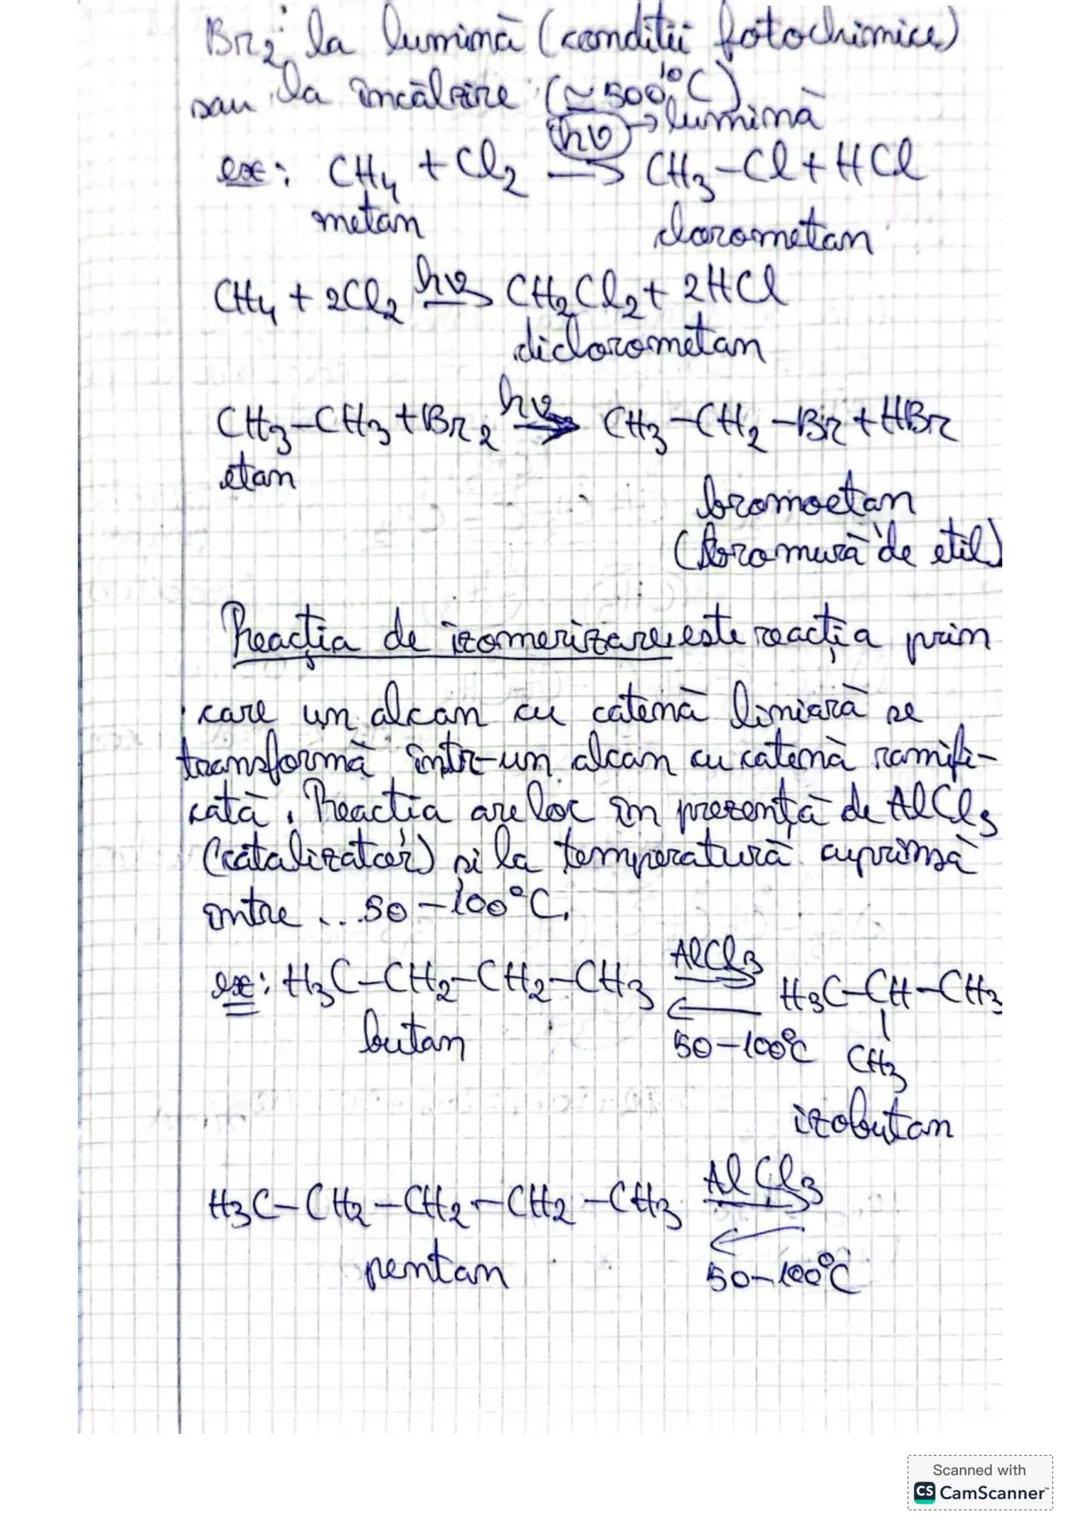 Br₂ la lumină (condiții fotochimice)
sau la încălzire (~500°C)
hν → lumină
ex: CH₄ + Cl₂ → CH₃-Cl + HCl
metan clorometan
CH₄ + 2Cl₂ hν→ CH₂Cl₂ + 2HCl
diclorometan
CH₃-CH₃ + Br₂ hν→ CH₃-CH₂-Br + HBr
etan
bromoetan
(bromură de etil)
Reacția de izomerizare este reacția prin
care un alcan cu catenă liniară se
transformă într-un alcan cu catenă ramifi-
cată. Reacția are loc în prezență de AlCl₃
(catalizator) și la temperatură cuprinsă
între ... 50-100°C.
AlCl₃
ex: H₃C-CH₂-CH₂-CH₃ ⇄ H₃C-CH-CH₃
butan 50-100°C CH₃
izobutan
AlCl₃
H₃C-CH₂-CH₂-CH₂-CH₃ ⇄
pentan 50-100°C
Scanned with
CS CamScanner